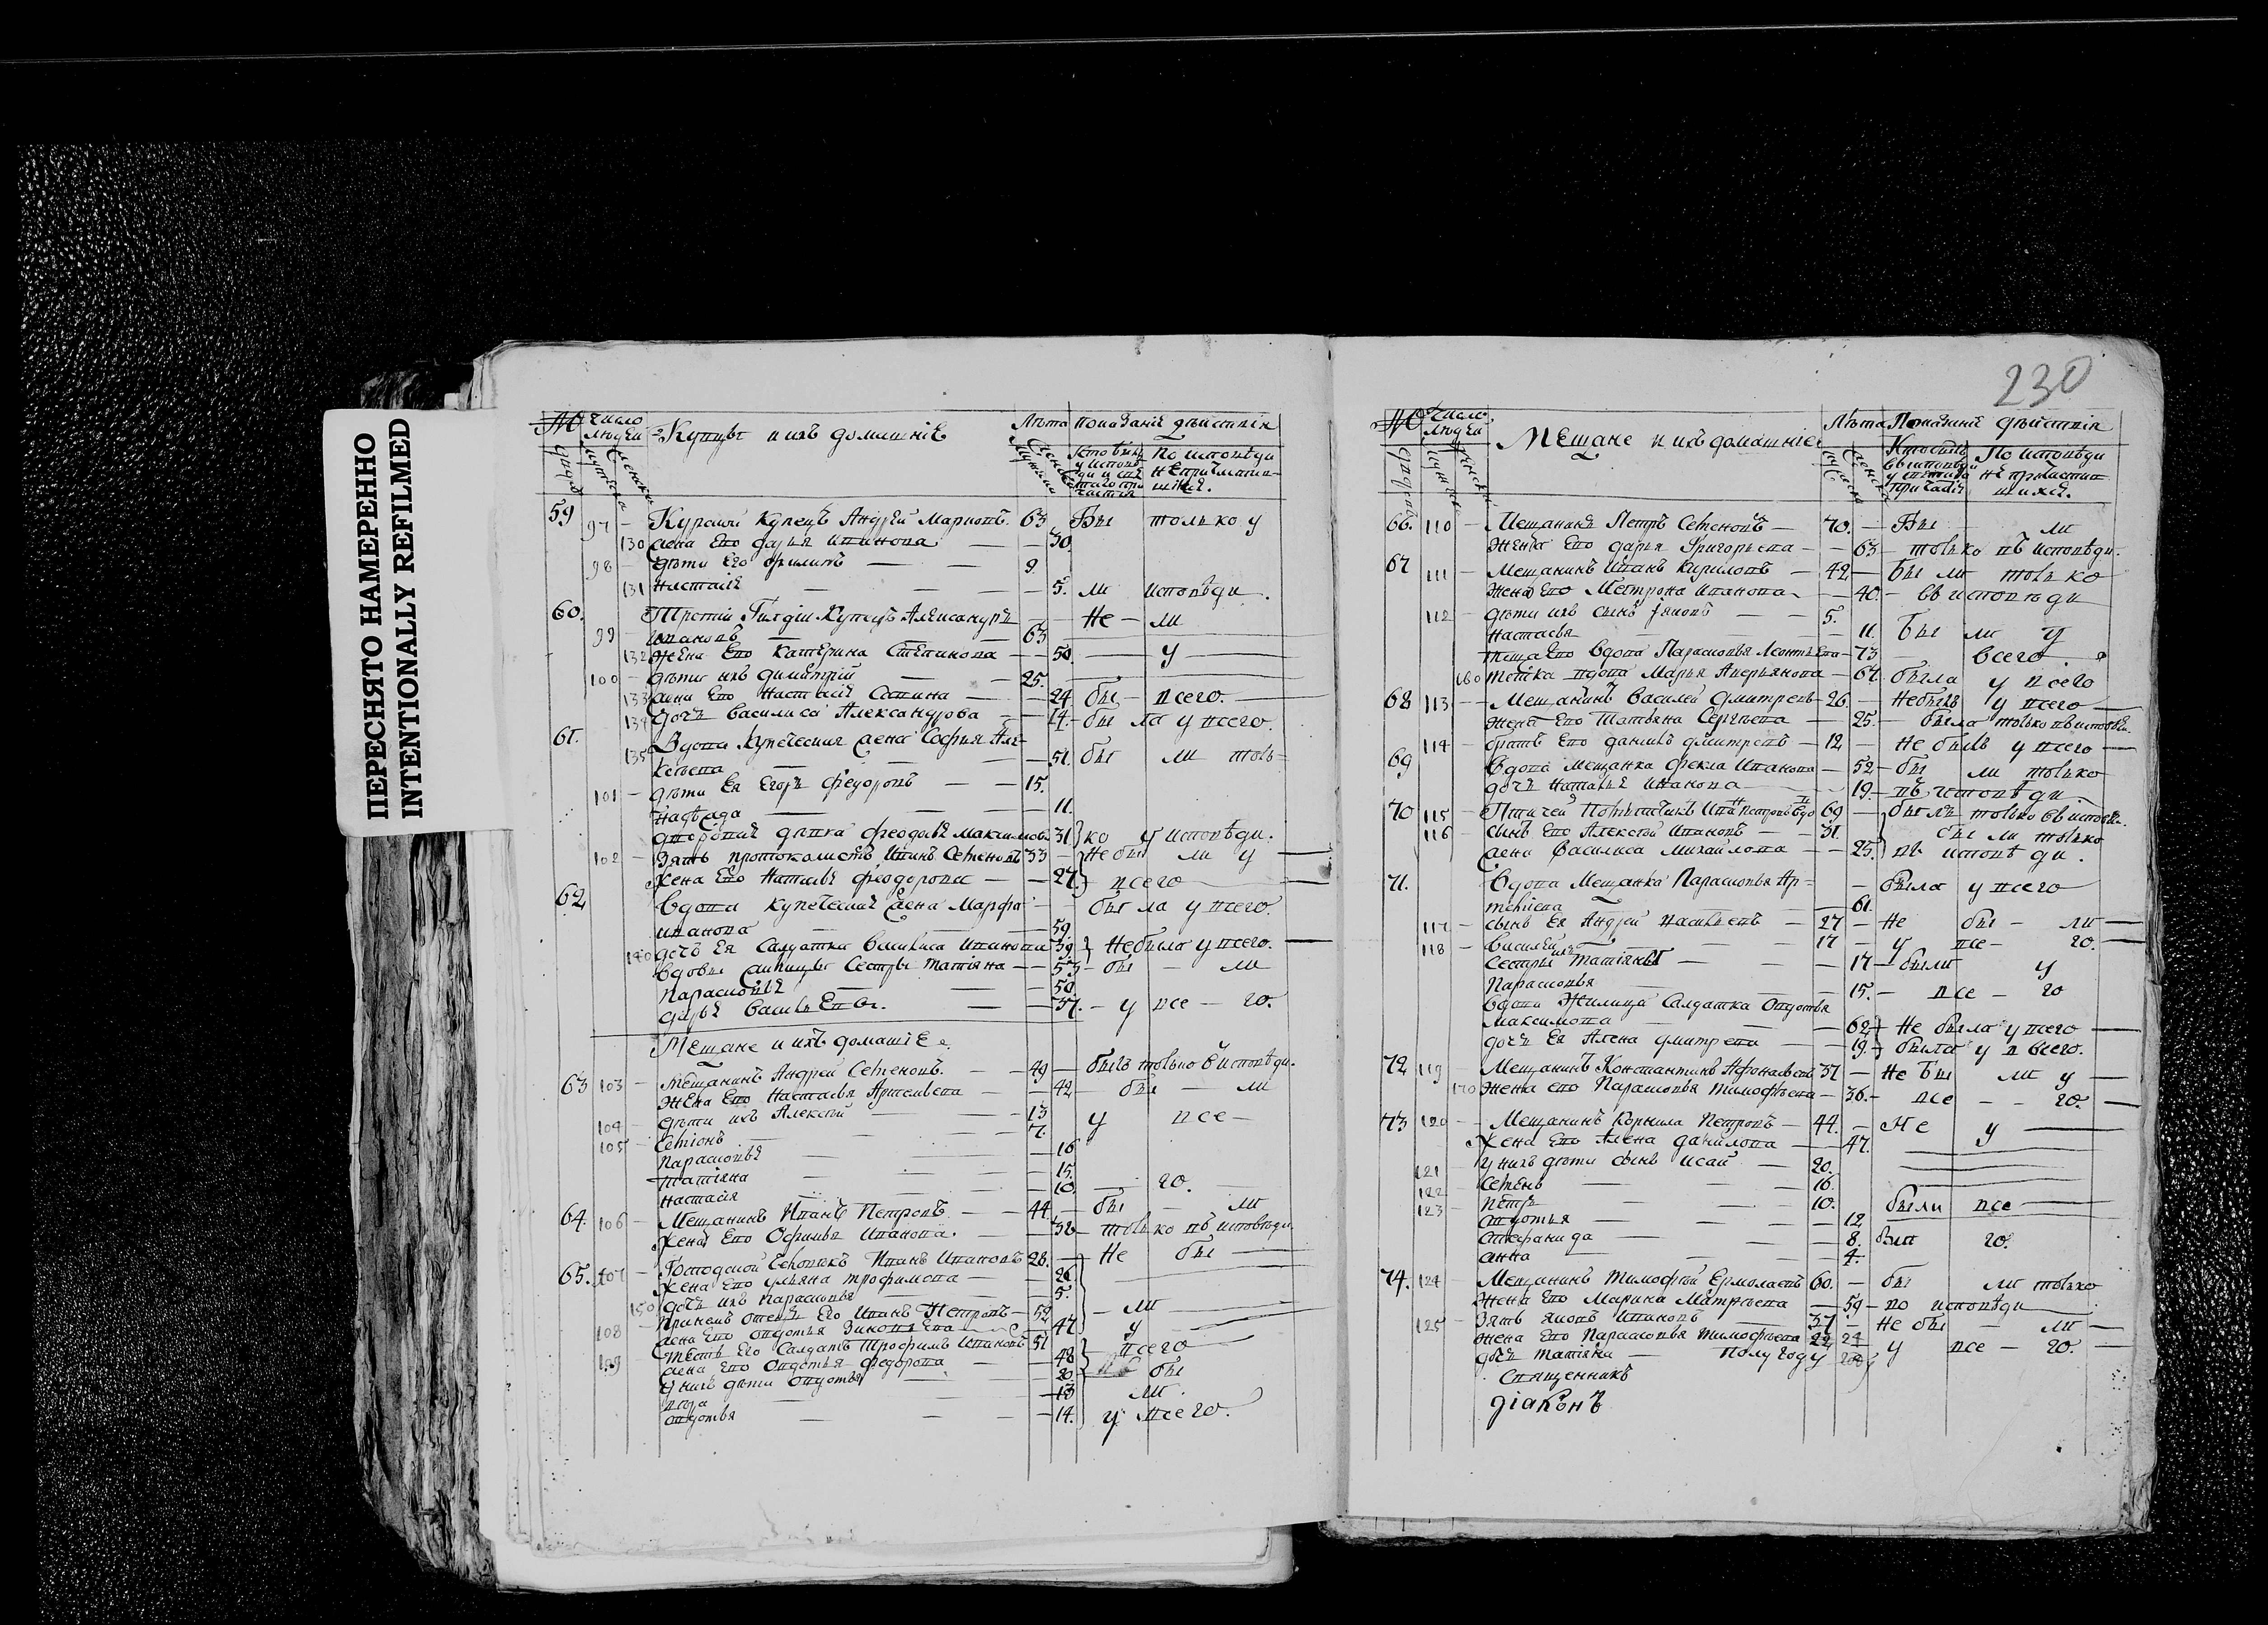 ПЕРЕСНЯТО НАМЕРЕННО
INTENTIONALLY REFILMED
№ Число Людей Купцы и ихъ домашніе Лѣта Показаніе дѣйствія
59 97 Курской Купецъ Андрей Марковъ 63 Бы только у
130 жена Его дарья Иванова 30
98 дѣти Его филипъ 9
131 Настасія 5. ли исповѣди.
60. Третій Гилдіи Купецъ Александръ Не ли
99 Ивановъ 63
132 Жена Его Катерина Степанова 50 у
100 дѣти ихъ Димитрій 25.
133 жена Его Настасія Савина 24 бы всего.
134 Дочь Василиса Александрова 14 была у всего.
61. Вдова Купеческая жена София Але-
135 ксѣева 51. бы ли толь-
101 дѣти Ея Егоръ Федоровъ 15.
Надежда 11.
дворовая дѣвка Феодосья Максимова 31 ко у исповѣди.
102 Зять протоколистъ Иванъ Семеновъ 33 Не бы ли у
Жена Его Наталья Феодорова 27 всего
62 Вдова купеческая жена Марфа была у всего.
Иванова 59.
140 дочь Ея Салдатка Василиса Иванова 39 Небыла у всего.
Вдовы Сестры Татіяна 53 бы ли
Парасковья 50.
Дарья Васильевы. 37. у все го.
Мещане и ихъ домашніе.
63 103 Мещанинъ Андрей Семеновъ. 49 былъ только в исповѣди.
Жена Его Настасья Артемьева 42 бы ли
104 дѣти ихъ Алексѣй 13 у все-
105 Семіонъ 7.
Парасковья 16
Татіяна 15.
Настасія 10 го.
64. 106 Мещанинъ Иванъ Петровъ 44 бы ли
Жена Его Офимья Иванова 38 только въ исповѣди.
65. 107 Иванъ Ивановъ 28. Не бы
Жена Его Ульяна Трофимова 26
150 дочь ихъ Парасковья 5.
108 Отецъ Его Иванъ Петровъ 52 ли
жена Его Овдотья 47 у
109 тесть Его Салдатъ Трофимъ Ивановъ 51
жена Его Овдотья Федорова 48 всего
У нихъ дѣти Овдотья 20 бы
13 ли.
Овдотья 14. у всего.
230
№ Число Людей Мещане и ихъ домашніе Лѣта Показаніе дѣйствія
66. 110 Мещанинъ Петръ Семеновъ 70. Бы ли
Жена Его дарья Григорьева 63 только въ исповѣди.
67 111 Мещанинъ Иванъ Кириловъ 42 Бы ли только
Жена Его Матрона Иванова 40. вь исповѣди
112 дѣти ихъ сынъ Яковъ 5.
Настасья 11. бы ли у
теща Его вдова Парасковья Леонтьева 73 всего.
160 тетка вдова Марья Аверьянова 67. была у всего
68 113 Мещанинъ Василей Дмитревъ 26 Небылъ у всего
Жена Его Татьяна Сергѣева 25. была только въ исповѣди.
114 братъ Его данила дмитревъ 12 Не былъ у всего
69 Вдова Мещанка фекла Иванова 52 бы ли только
дочь Наталья Иванова 19. въ исповѣди.
70 115 69 былъ только въ исповѣди.
116 сынъ Его Алексѣй Ивановъ 31. бы ли только
жена Василиса Михайлова 25. въ исповѣди.
71. Вдова Мещанка Парасковья Ар- была у всего
темьева 61.
117 сынъ Ея Андрей Васильевъ 27 Не бы ли
118 Василей 17 у все- го.
Сестры Татіяны 17 были у
Парасковья 15. все го
вдова Жилица Салдатка Овдотья
Максимова 62 Не была у всего
дочь Ея Алена Дмитрева 19. была у всего.
72 119 Мещанинъ Константинъ Афонасьевъ 37 Не бы ли у
170 Жена его Парасковья Тимофѣева 36. все го.
73 120 Мещанинъ Корнила Петровъ 44. Не у
Жена Его Алена данилова 47.
121 У нихъ дѣти сынъ Исай 20.
122 Семенъ 16.
123 Петръ 10. были все
Овдотья 12
Стефанида 8. го.
анна 4.
74. 124 Мещанинъ Тимофѣй Ермолаевъ 60. бы ли только
Жена Его Марина Матвѣева 59 во исповѣди
125 Зять Яковъ Ивановъ 37 Не бы ли
Жена Его Парасковья Тимофѣева 24
дочь Татіяна Полу году у все го.
Священникъ
діаконъ